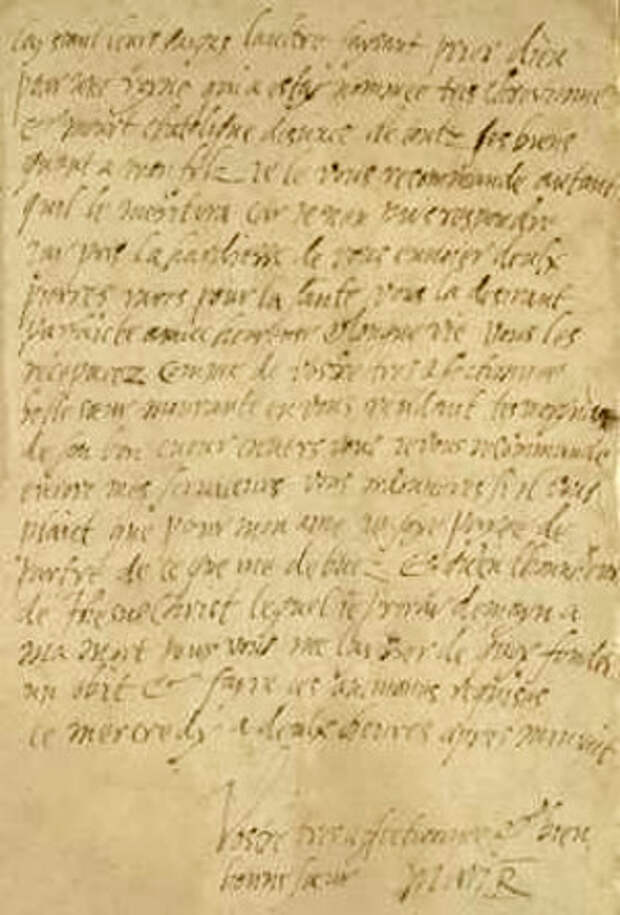 laultre faysant prier dieu
pour une royne qui a estay nommee tres chrestienne
& meurt catholique desnuee de toutz ses biens
quant a mon filz ie le vous recommande autant
quil le meritera car ie nen puis respondre
iay pris la hardiesse de vous envoyer deulx
pierres rares pour la sante vous la desirant
parfaicte avec heureuse & longue vie vous les
recepvrez comme de vostre tres affectionnee
belle sœur mourante en vous rendant
de son bon cueur envers vous ie vous recommande
encore mes serviteurs vous si il vous
plaict que pour mon ame ie soye payee de
partye de ce que me debvez & quen lhonneur
de Jhesus Christ lequel ie priray demayn a
ma mort pour vous me laisser de quoy fonder
un obit & fayre les aumosnes requises
ce mercredy a deulx heures apres minuit
Vostre tres affectionnee & bien
bonne sœur Mari R